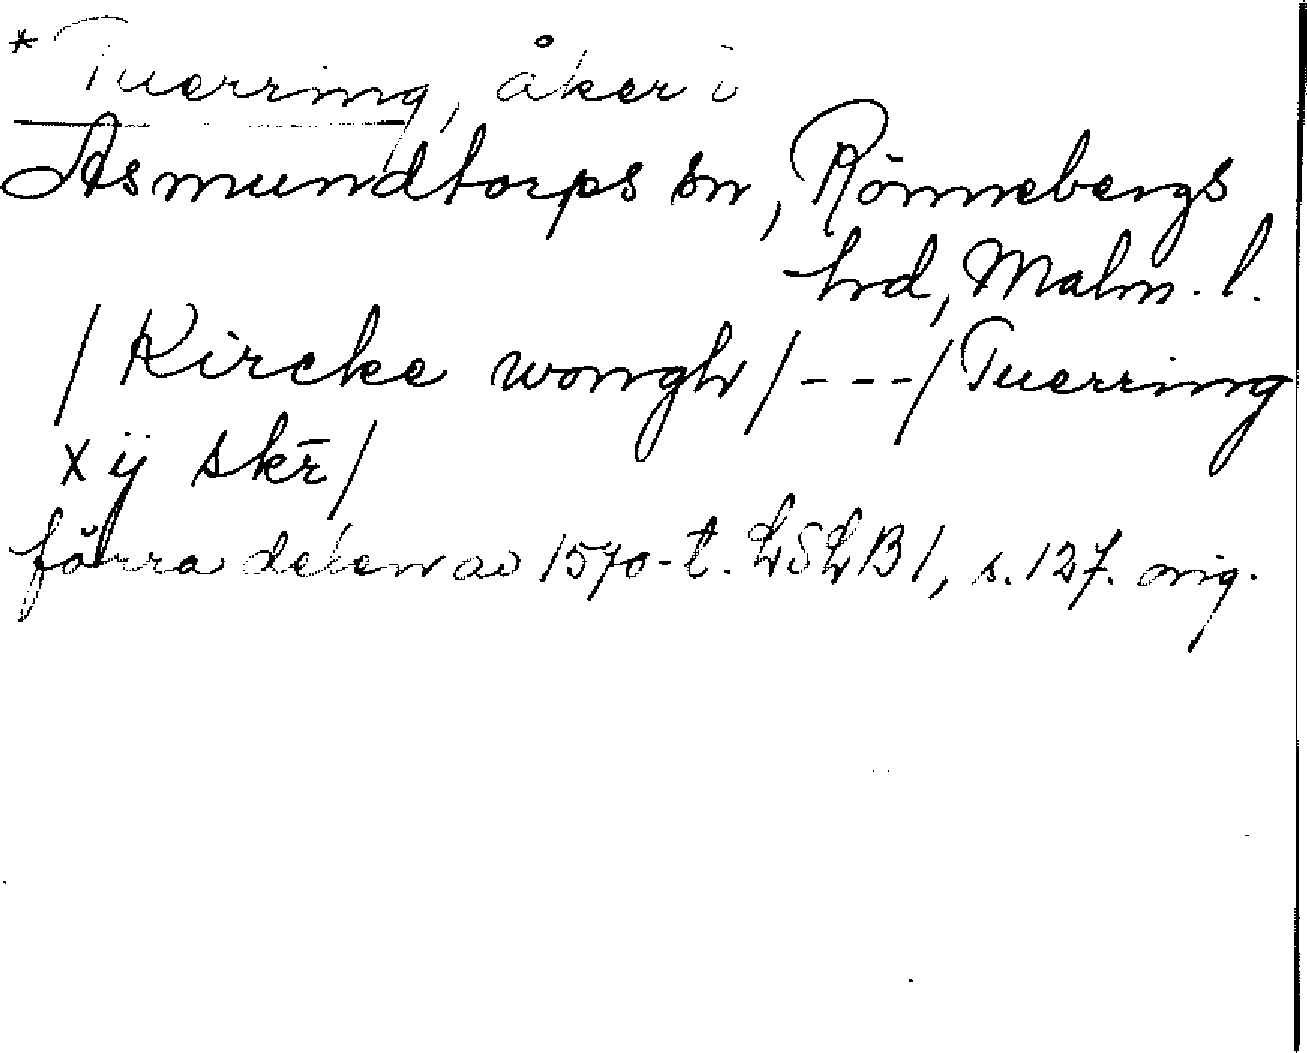 * Tuerring, åker i
Asmundtorps sn, Rönnebergs
hd, Malm. l.
/ Kircke wongh / - - - / Tuerring
x ij skr̄ /
förra delen av 1570-t. LSLB 1, s. 127. orig.